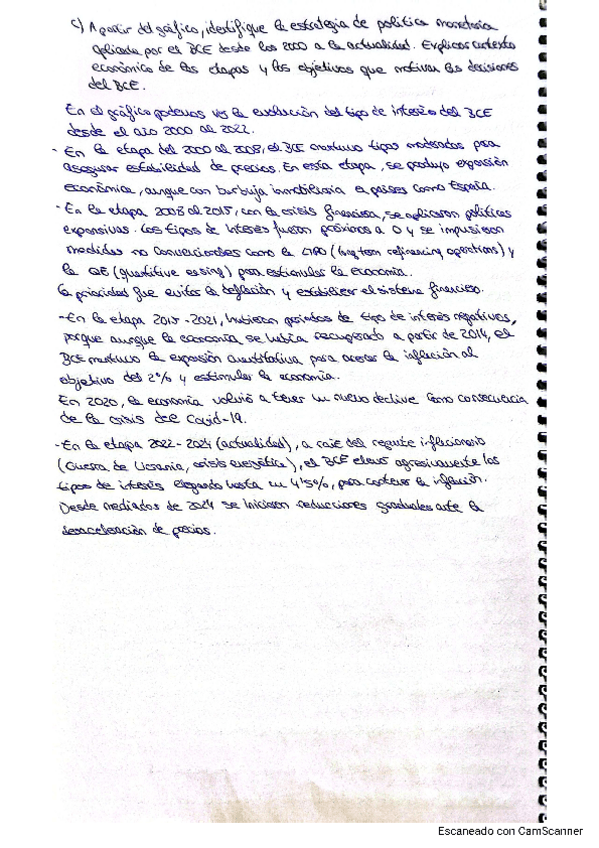 c) A partir del gráfico, identifique la estrategia de política monetaria
aplicada por el BCE desde los 2000 a la actualidad. Explicar contexto
económico de las etapas y los objetivos que motivan las decisiones
del BCE.
En el gráfico podemos ver la evolución del tipo de interés del BCE
desde el año 2000 al 2022.
- En la etapa del 2000 al 2008, el BCE mantuvo tipos moderados para
asegurar estabilidad de precios. En esta etapa, se produjo expansión
económica, aunque con burbuja inmobiliaria en países como España.
- En la etapa 2008 al 2015, con la crisis financiera, se aplicaron políticas
expansivas. Los tipos de interés fueron próximos a 0 y se impusieron
medidas no convencionales como la LTRO (long term refinancing operations) y
la QE (quantitive easing) para estimular la economía.
La prioridad fue evitar la deflación y estabilizar el sistema financiero.
- En la etapa 2015-2021, hubieron periodos de tipo de interés negativos,
porque aunque la economía se había recuperado a partir de 2014, el
BCE mantuvo la expansión cuantitativa para acercar la inflación al
objetivo del 2% y estimular la economía.
En 2020, la economía volvió a tener un nuevo declive como consecuencia
de la crisis del Covid-19.
- En la etapa 2022-2024 (actualidad), a raíz del repunte inflacionario
(Guerra de Ucrania, crisis energética), el BCE elevó agresivamente los
tipos de interés llegando hasta un 4'5%, para contener la inflación.
Desde mediados de 2024 se iniciaron reducciones graduales ante la
desaceleración de precios.
Escaneado con CamScanner